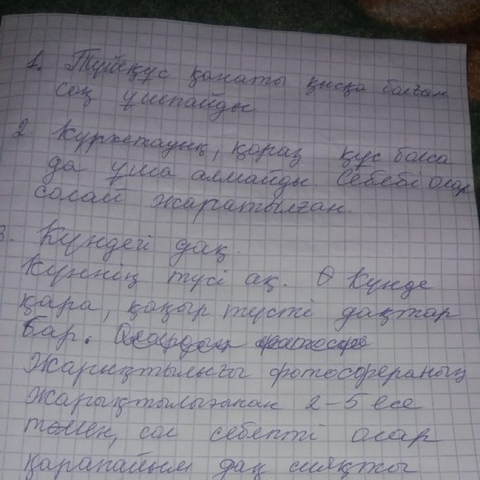 1. Түйеқұс қанаты қысқа болған
соң ұшпайды
2. Күркетауық, қораз құс болса
да ұша алмайды. Себебі олар
солай жаратылған.
3. Күндегі дақ.
Күннің түсі ақ. Күнде
қара, қоңыр түсті дақтар
бар. Олардың фотосфе
Жарықтылығы фотосфераның
Жарықтылығынан 2-5 есе
төмен, сол себепті олар
қарапайым дақ сияқты